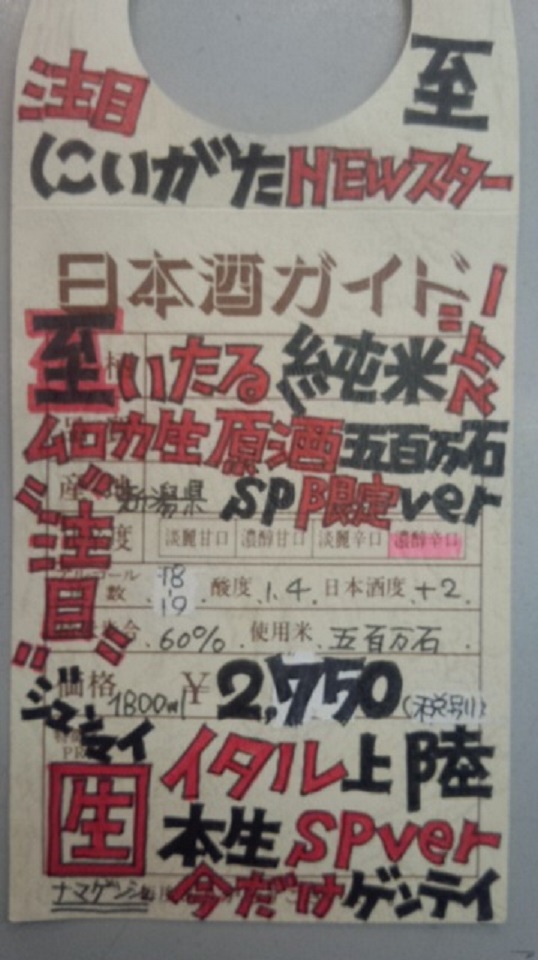 注目 至
にいがたNEWスター
日本酒ガイド
至 いたる 純米 スゲー
ムロカ生原酒 五百万石
産 地 新潟県 SP限定ver
注目
度 淡麗甘口 濃醇甘口 淡麗辛口 濃醇辛口
アルコール
数 18 19 酸度 1.4 日本酒度 +2
合 60% 使用米 五百万石
価格 1800ml ¥2,750(税別)
ジュンマイ イタル上陸
生 本生 SPver
ナマゲンシュ 今だけゲンテイ